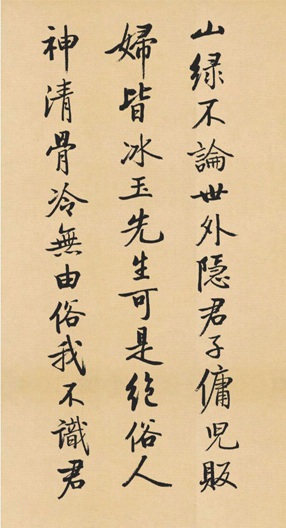 山緑不論世外隱君子傭兒販
婦皆冰玉先生可是絕俗人
神清骨冷無由俗我不識君